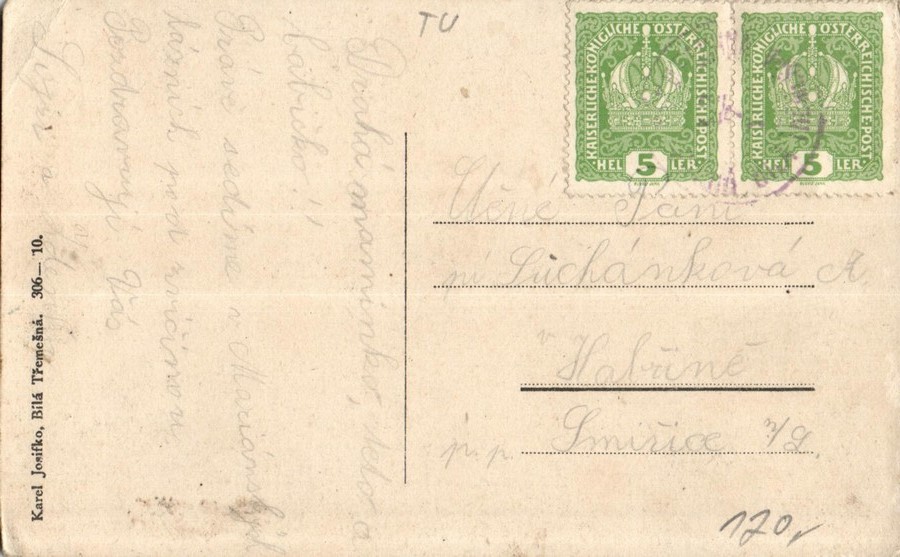 TU
KAISERLICHE·KÖNIGLICHE ÖSTERREICHISCHE POST
HELLER 5
KAISERLICHE·KÖNIGLICHE ÖSTERREICHISCHE POST
HELLER 5
Drahá maminko, a
babičko!
Právě sedíme v Mariánských
lázních pod Zvičinou
Pozdravují Vás
a
Karel Josifko, Bílá Třemešná. 306—10.
Ctěné Paní
pí Sucháňková A.
v Habřině
p. p. Smiřice n/L
120,